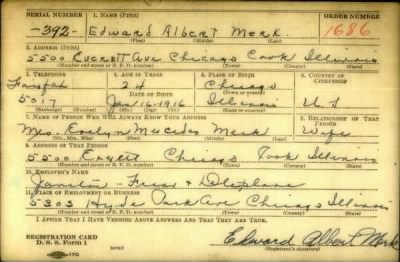 SERIAL NUMBER 1. NAME (PRINT) ORDER NUMBER
-392- Edward Albert Merk 1686
(First) (Middle) (Last)
2. ADDRESS (PRINT)
5500 Everett Ave Chicago Cook Illinois
(Number and street or R. F. D. number) (Town) (County) (State)
3. TELEPHONE 4. AGE IN YEARS 5. PLACE OF BIRTH 6. COUNTRY OF CITIZENSHIP
Fairfax 24 Chicago
DATE OF BIRTH (Town or county)
5017 Jan 16-1916 Illinois U S
(Mo.) (Day) (Yr.) (State or country)
7. NAME OF PERSON WHO WILL ALWAYS KNOW YOUR ADDRESS 8. RELATIONSHIP OF THAT PERSON
Mrs. Evelyn Mercedes Merk Wife
(Mr., Mrs., Miss) (First) (Middle) (Last)
9. ADDRESS OF THAT PERSON
5500 Everett Chicago Cook Illinois
(Number and street or R. F. D. number) (Town) (County) (State)
10. EMPLOYER'S NAME
11. PLACE OF EMPLOYMENT OR BUSINESS
5303 Hyde Park Ave Chicago Illinois
(Number and street or R. F. D. number) (Town) (County) (State)
I AFFIRM THAT I HAVE VERIFIED ABOVE ANSWERS AND THAT THEY ARE TRUE.
REGISTRATION CARD
D. S. S. Form 1 (over) Edward Albert Merk
(Registrant's signature)